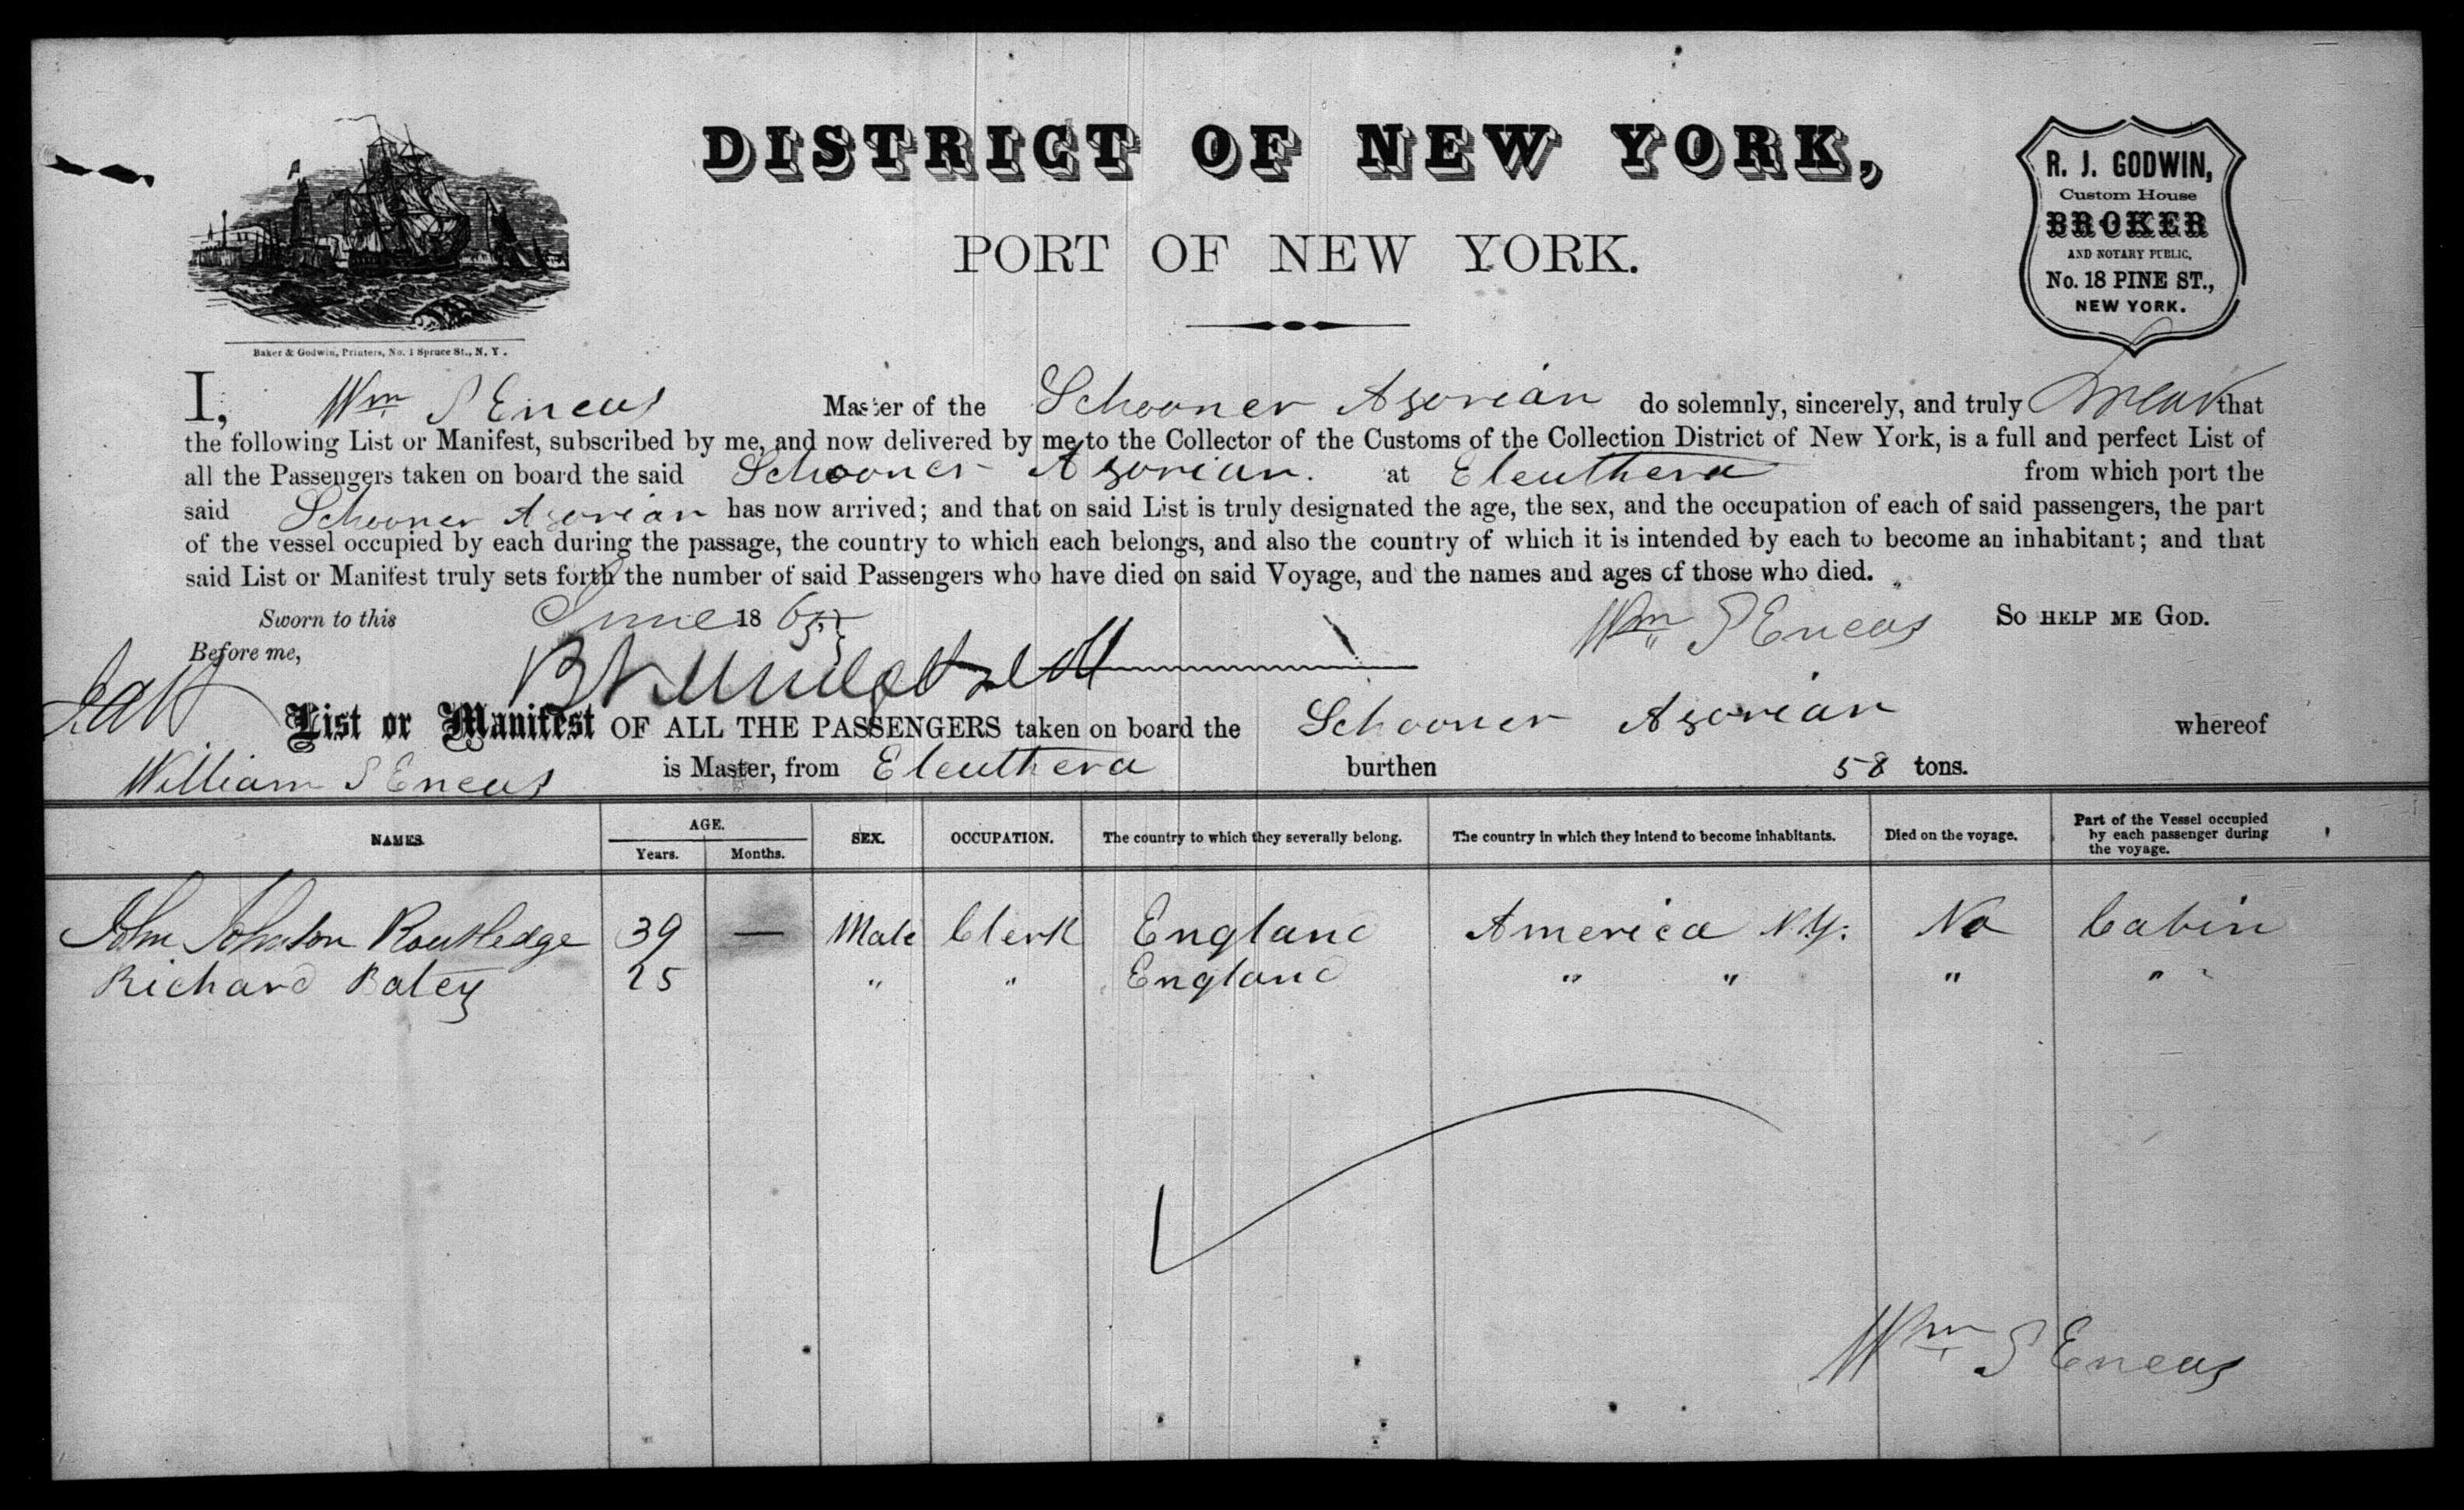 DISTRICT OF NEW YORK,
PORT OF NEW YORK.
R. J. GODWIN,
Custom House
BROKER
AND NOTARY PUBLIC,
No. 18 PINE ST.,
NEW YORK.
Baker & Godwin, Printers, No. 1 Spruce St., N. Y.
I, Wm S Eneas Master of the Schooner Azorian do solemnly, sincerely, and truly Swear that
the following List or Manifest, subscribed by me, and now delivered by me to the Collector of the Customs of the Collection District of New York, is a full and perfect List of
all the Passengers taken on board the said Schooner Azorian. at Eleuthera from which port the
said Schooner Azorian has now arrived; and that on said List is truly designated the age, the sex, and the occupation of each of said passengers, the part
of the vessel occupied by each during the passage, the country to which each belongs, and also the country of which it is intended by each to become an inhabitant; and that
said List or Manifest truly sets forth the number of said Passengers who have died on said Voyage, and the names and ages of those who died.
Sworn to this June 18 Wm S Eneas SO HELP ME GOD.
Before me,
List or Manifest OF ALL THE PASSENGERS taken on board the Schooner Azorian whereof
William S Eneas is Master, from Eleuthera burthen 58 tons.
NAMES. AGE. Years. Months. SEX. OCCUPATION. The country to which they severally belong. The country in which they intend to become inhabitants. Died on the voyage. Part of the Vessel occupied by each passenger during the voyage.
John Johnson Routledge 39 — Male Clerk England America N.Y. No Cabin
Richard Batey 25 " " England " " " "
Wm S Eneas